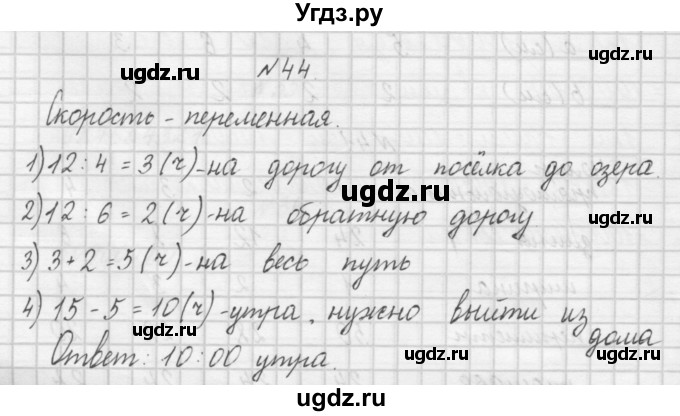 Угдз.ру
ugdz.ru ugdz.ru ugdz.ru
№44.
Скорость - переменная.
1) 12 : 4 = 3 (ч) - на дорогу от посёлка до озера.
ugdz.ru
2) 12 : 6 = 2 (ч) - на обратную дорогу
ugdz.ru ugdz.ru
3) 3 + 2 = 5 (ч) - на весь путь
4) 15 - 5 = 10 (ч) - утра, нужно выйти из
дома
ugdz.ru
Ответ: 10:00 утра.
ugdz.ru ugdz.ru
ugdz.ru